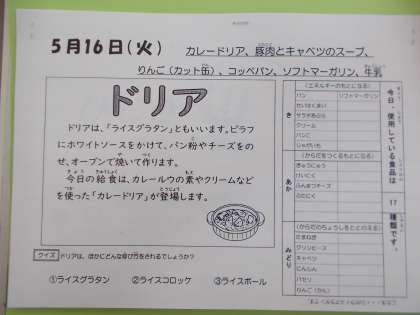 5月16日(火)
カレードリア、豚肉とキャベツのスープ、
りんご(カット缶)、コッペパン、ソフトマーガリン、牛乳
ドリア
ドリアは、「ライスグラタン」ともいいます。ピラフ
にホワイトソースをかけて、パン粉やチーズをの
せ、オーブンで焼いて作ります。
今日の給食は、カレールウの素やクリームなど
を使った「カレードリア」が登場します。
クイズ ドリアは、ほかにどんな呼び方をされるでしょうか?
①ライスグラタン ②ライスコロッケ ③ライスボール
今日、使用している食品は 17 種類です。
き
(エネルギーのもとになる)
パン ソフトマーガリン
せいはくまい
サラダあぶら
クリーム
パンこ
じゃがいも
あか
(からだをつくるもとになる)
ぎゅうにゅう
だっしふんにゅう
ふんまつチーズ
ぶたにく
みどり
(からだのちょうしをととのえる)
たまねぎ
グリンピース
キャベツ
にんじん
パセリ
りんご(かん)